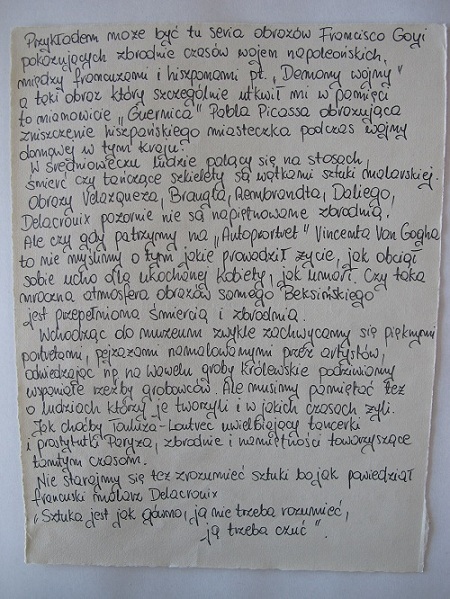 Przykładem może być tu seria obrazów Francisco Goyi
pokazujących zbrodnie czasów wojen napoleońskich,
między francuzami i hiszponami pt. „Demony wojny"
a taki obraz który szczególnie utkwił mi w pamięci
to mianowicie „Guernica" Pabla Picassa obrazująca
zniszczenie hiszpańskiego miasteczka podczas wojny
domowej w tym kraju.
W średniowieczu ludzie palący się na stosach,
śmierć czy tańczące szkielety są wątkami sztuki malarskiej.
Obrazy Velazqueza, Braugla, Rembrandta, Daliego,
Delacroix pozornie nie są napiętnowane zbrodnią.
Ale czy gdy patrzymy na „Autoprortret" Vincenta Van Gogha
to nie myślimy o tym jakie prowadził życie, jak obciął
sobie ucho dla ukochanej kobiety, jak umarł. Czy taka
mroczna atmosfera obrazów samego Beksińskiego
jest przepełniona śmiercią i zbrodnią.
Wchodząc do muzeum zwykle zachwycamy się pięknymi
portretami, pejzażami namalowanymi przez artystów,
odwiedzając np na Wawelu groby Królewskie podziwiamy
wspaniałe rzeźby grobowców. Ale musimy pamiętać też
o ludziach którzy je tworzyli i w jakich czasach żyli.
Jak choćby Tauluza-Loutrec uwielbiający tancerki
i prostytutki Paryża, zbrodnie i namiętności towarzyszące
tamtym czasom.
Nie starajmy się też zrozumieć sztuki bo jak powiedział
francuski malarz Delacroix
„Sztuka jest jak gówno, ją nie trzeba rozumieć,
ją trzeba czuć".